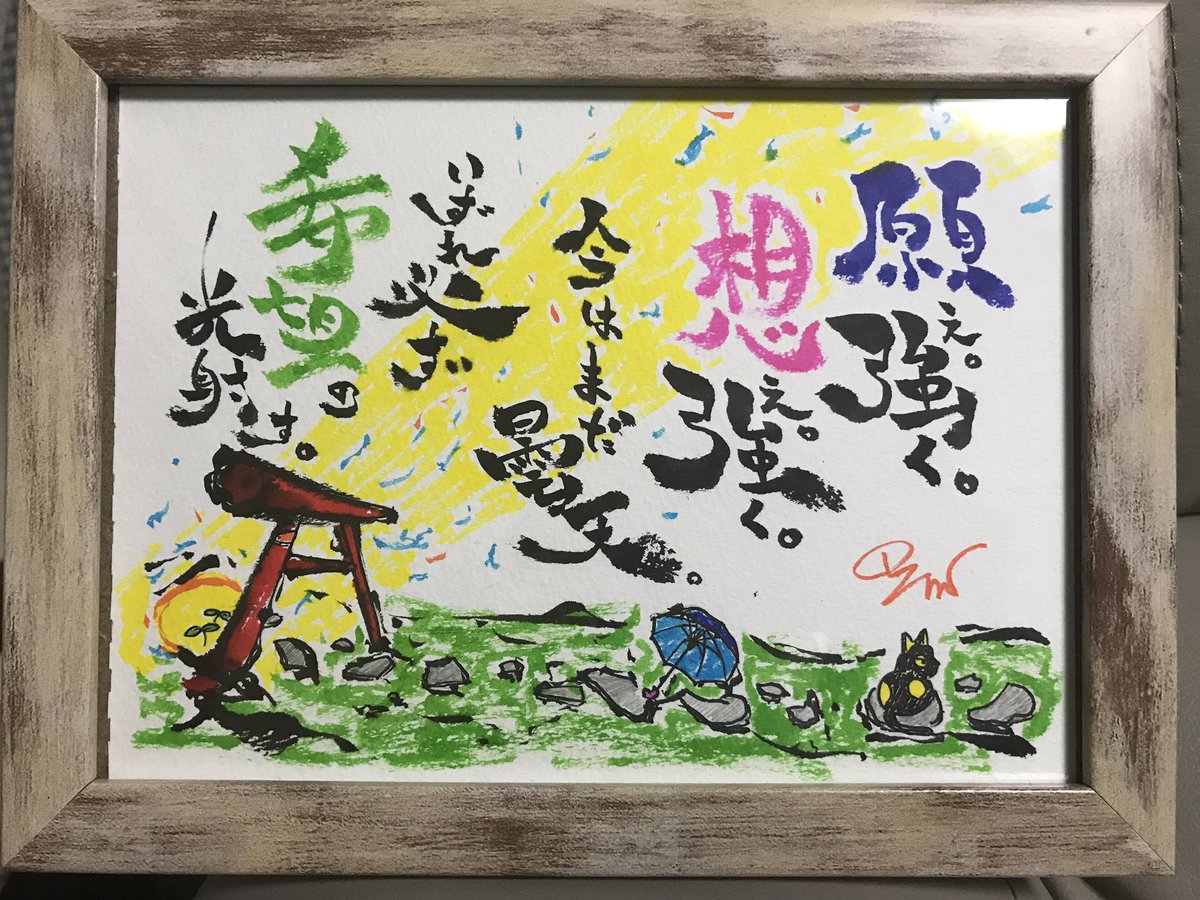 願え。
強く。
想え。
強く。
今はまだ
曇天。
いずれ必ず
希望の
光射す。